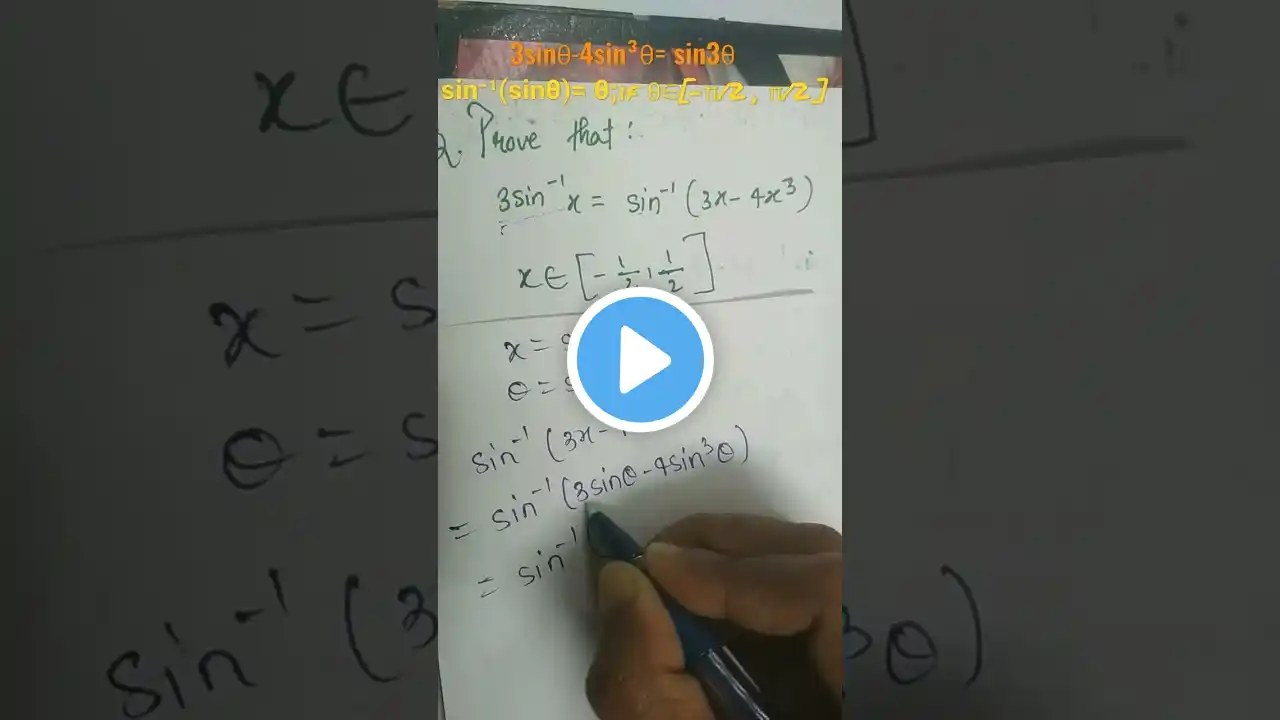 3sinθ-4sin³θ= sin3θ
sin⁻¹(sinθ)= θ;IF θ∈[-π/2, π/2]
2. Prove that:
3sin⁻¹x = sin⁻¹(3x-4x³)
x∈[-1/2, 1/2]
x =
θ =
sin⁻¹(3x-
= sin⁻¹(3sinθ-4sin³θ)
= sin⁻¹